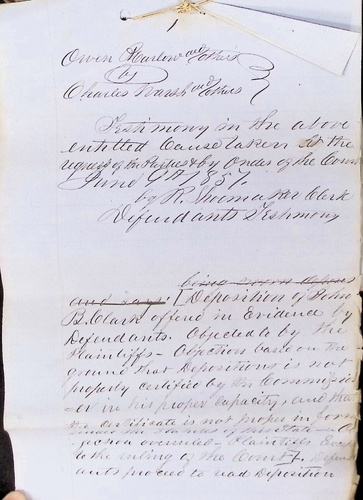 1
Owen Marlow and Others
By
Charles Walsh and Others
Testimony in the above
entitled Cause taken at the
request of the Parties & by Order of the Court
June 9th 1857.
by R. Shoemaker Clerk
Defendants Testimony
being sworn deposes
and says. [Deposition of John
B. Clark offered in Evidence by
Defendants. Objected to by the
Plaintiffs - Objection based on the
ground that Depositions is not
properly certified by the Commissio
-er in his proper capacity, and that
the certificate is not proper in form
under the Statutes of this State - Ob
jection overruled - Plaintiffs Except
to the ruling of the Court]. Defend
ants proceed to read Deposition